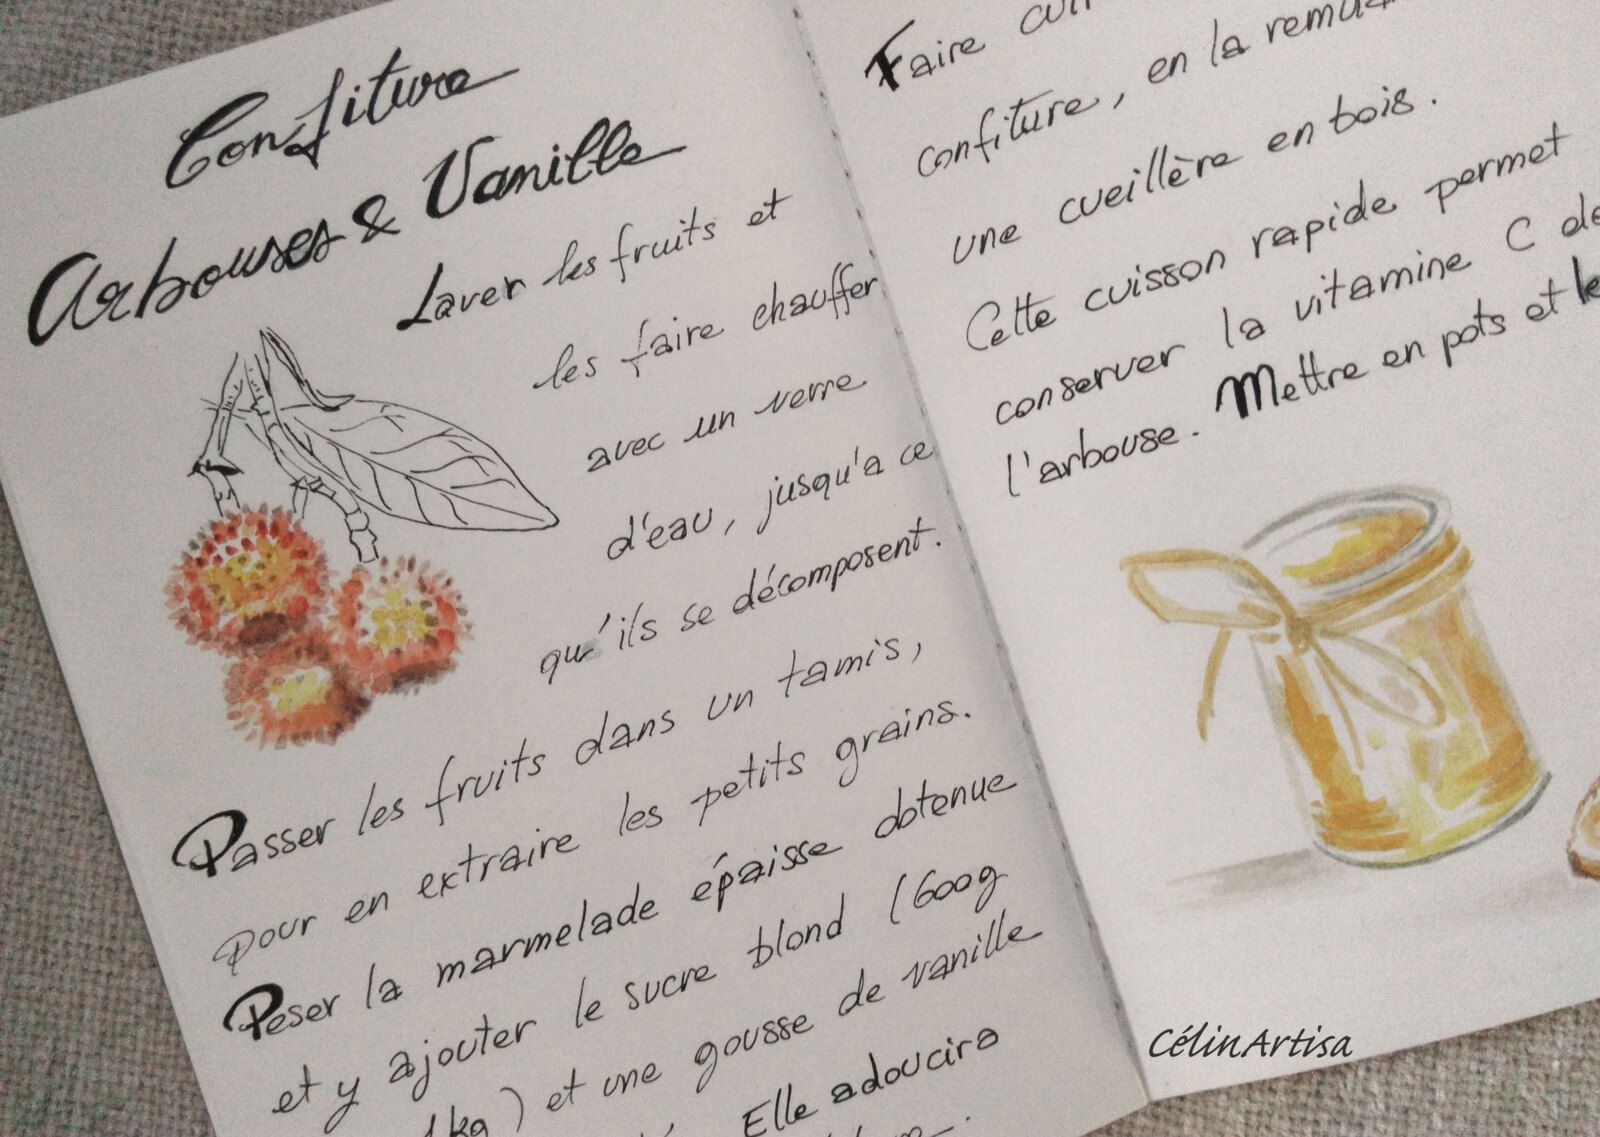 Confiture
Arbouses & Vanille
Laver les fruits et
les faire chauffer
avec un verre
d'eau, jusqu'a ce
qu'ils se décomposent.
Passer les fruits dans un tamis,
pour en extraire les petits grains.
Peser la marmelade épaisse obtenue
et y ajouter le sucre blond (600g
1kg) et une gousse de vanille
Elle adoucira
Faire
confiture, en la
une cueillère en bois.
Cette cuisson rapide permet
conserver la vitamine C de
l'arbouse. Mettre en pots et
CélinArtisa